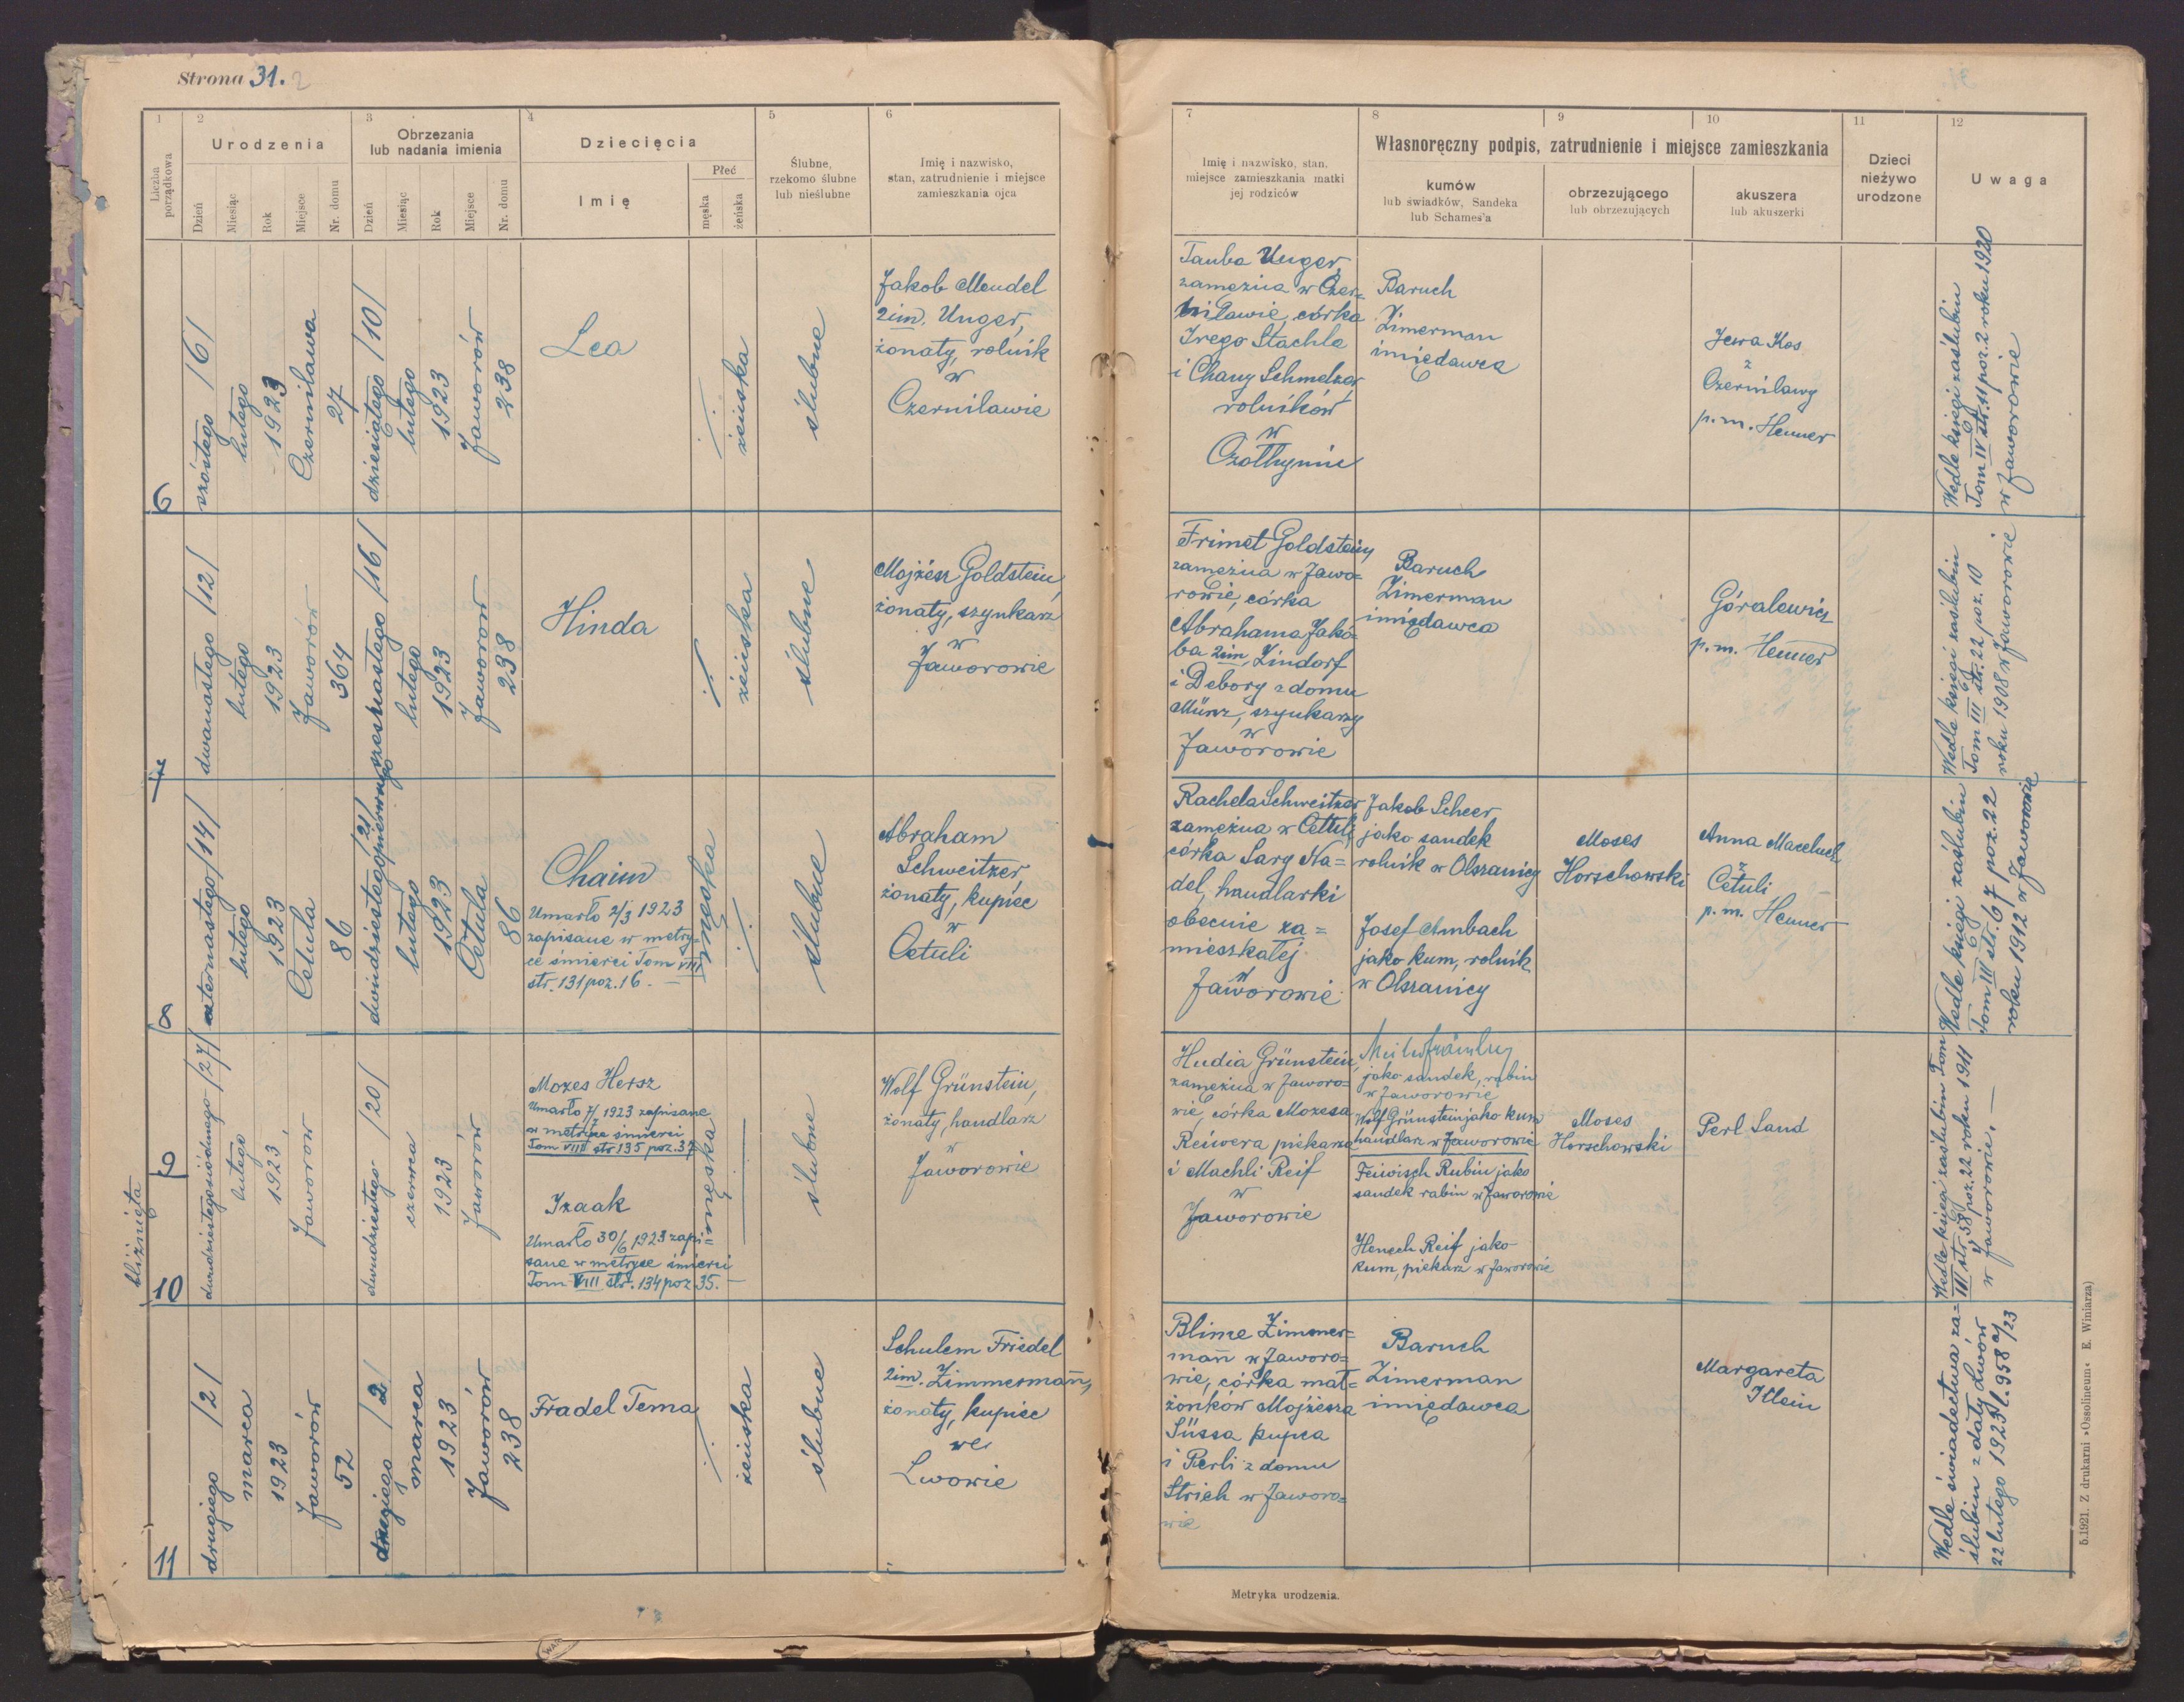 Strona 31.
1
2
3
4
5
6
Liczba porządkowa
Urodzenia
Obrzezania
lub nadania imienia
Dziecięcia
Ślubne,
rzekomo ślubne
lub nieślubne
Imię i nazwisko,
stan, zatrudnienie i miejsce
zamieszkania ojca
Dzień
Miesiąc
Rok
Miejsce
Nr. domu
Dzień
Miesiąc
Rok
Miejsce
Nr. domu
Imię
Płeć
męska
żeńska
7
8
9
10
11
12
Imię i nazwisko, stan,
miejsce zamieszkania matki
jej rodziców
Własnoręczny podpis, zatrudnienie i miejsce zamieszkania
kumów
lub świadków, Sandeka
lub Schames'a
obrzezującego
lub obrzezujących
akuszera
lub akuszerki
Dzieci
nieżywo
urodzone
Uwaga
6
szóstego /6/
lutego
1923
Czernilawa
27
dziesiątego /10/
lutego
1923
Jaworów
238
Lea
żeńska
ślubne
Jakob Mendel
2im. Unger,
żonaty, rolnik
w
Czernilawie
Tauba Unger,
zamężna w Czer=
nilawie, córka
Irego Stachla
i Chany Schmelzer
rolników
w
Baruch
Zimerman
imiędawca
Jewa Kos
z
Czernilawy
p.m. Henner
Wedle księgi zaślubin
Tom IV str. 11 poz. 2 roku 1920
w Jaworowie
7
dwunastego /12/
lutego
1923
Jaworów
364
szesnastego /16/
lutego
1923
Jaworów
238
Hinda
żeńska
ślubne
Mojżesz Goldstein,
żonaty, szynkarz
w
Jaworowie
Frimet Goldstein,
zamężna w Jawo=
rowie, córka
Abrahama Jakó=
ba 2im. Lindorf
i Debory z domu
Münz, szynkarzy
w
Jaworowie
Baruch
Zimerman
imiędawca
Góralewicz
p.m. Henner
Wedle księgi zaślubin
Tom III str. 22 poz. 10
roku 1908 w Jaworowie
8
czternastego /14/
lutego
1923
Cetula
86
dwudziestegopierwszego /21/
lutego
1923
Cetula
86
Chaim
Umarło 2/3 1923
zapisane w metry=
ce śmierci Tom VIII
str. 131 poz. 16. —
męska
ślubne
Abraham
Schweitzer
żonaty, kupiec
w
Cetuli
Rachela Schweitzer
zamężna w Cetuli,
córka Sary Na=
del, handlarki
obecnie za=
mieszkałej
w
Jaworowie
Jakob Scheer,
jako sandek
rolnik w Olszanicy
Josef Ambach
jako kum, rolnik
w Olszanicy
Moses
Horschowski
Anna Maceluch
z
Cetuli
p.m. Henner
Wedle księgi zaślubin
Tom III str. 67 poz. 22
roku 1912 w Jaworowie
bliźnięta
9
10
dwudziestegosiódmego /27/
lutego
1923
Jaworów
dwudziestego /20/
czerwca
1923
Jaworów
Mozes Hersz
Umarło 7/7 1923 zapisane
w metryce śmierci
Tom VIII str 135 poz. 37
Izaak
Umarło 30/6 1923 zapi=
sane w metryce śmierci
Tom VIII str. 134 poz 35. —
męska
ślubne
Wolf Grünstein,
żonaty, handlarz
w
Jaworowie
Hudia Grünstein,
zamężna w Jaworo=
wie, córka Mozesa
Reiwera piekarza
i Machli Reif
w
Jaworowie
jako sandek, rabin
w Jaworowie
Wolf Grünstein jako kum
handlarz w Jaworowie
Feiwisch Rubin jako
sandek rabin w Jaworowie
Henech Reif jako
kum, piekarz w Jaworowie
Moses
Horschowski
Perl Sand
Wedle księgi zaślubin Tom
III str. 58 poz. 22 roku 1911
w Jaworowie. —
11
drugiego /2/
marca
1923
Jaworów
52
drugiego /2/
marca
1923
Jaworów
238
Fradel Tema
żeńska
ślubne
Schulem Friedel
2im. Zimmermañ,
żonaty, kupiec
we
Lwowie
Blime Zimmer=
mañ w Jaworo=
wie, córka mał=
żonków Mojżesza
Süssa kupca
i Perli z domu
Strich w Jaworo=
wie
Baruch
Zimerman
imiędawca
Margareta
Klein
Wedle świadectwa za=
ślubin z daty Lwów
22 lutego 1923 l. 958 a/23
Metryka urodzenia.
5.1921. Z drukarni »Ossolineum« E. Winiarza)